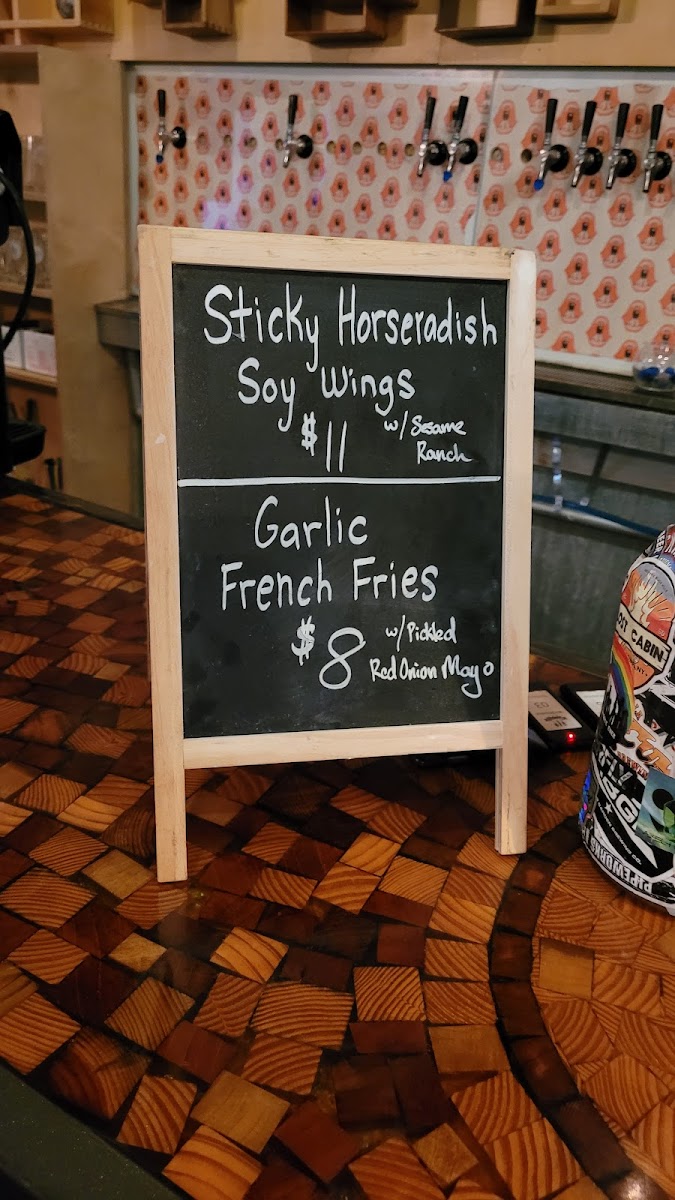 Sticky Horseradish
Soy Wings
$11 w/ Sesame
Ranch
Garlic
French Fries
$8 w/ Pickled
Red Onion Mayo
CABIN
PIPEWORKS